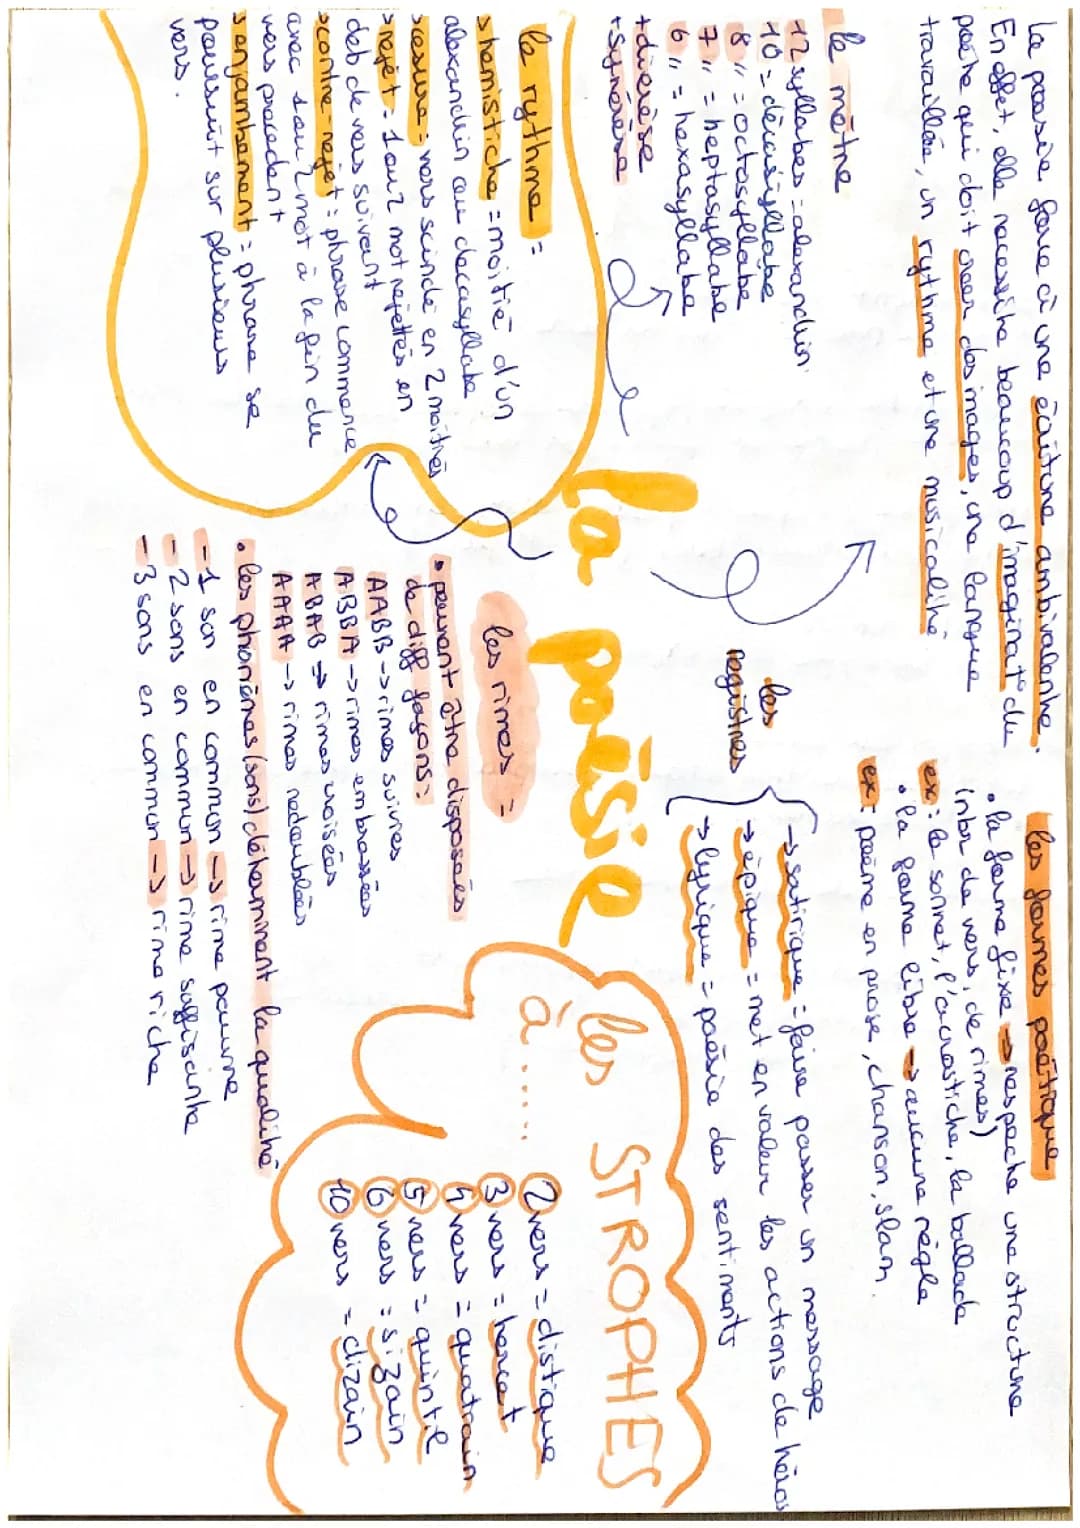 La poésie face à une écriture ambivalente.
En effet, elle necessite beaucoup d'imaginat° du
poète qui doit créer des images, une langue
travaillée, un rythme et une musicalité
les formes poétique
• la forme fixe → respecte une structure
(nbr de vers, de rimes)
ex: le sonnet, l'acrostiche, la ballade
• la forme libre → aucune règle
ex: poème en prose, chanson, slam.
le mètre
12 syllabes = alexandrin
10 = décasyllabe
8 " = octosyllabe
7 " = heptasyllabe
6 " = hexasyllabe
+ diérèse
+ synérèse
les
registres
→ satirique = faire passer un message
→ épique = met en valeur les actions de héros
→ lyrique = poésie des sentiments
la poésie
le rythme =
> hemistiche = moitié d'un
alexandrin ou decasyllabe
> césure = vers scindé en 2 moitiés
> rejet = 1 ou 2 mot rejettés en
deb de vers suivant
> contre-rejet : phrase commence
avec 1 ou 2 mot à la fin du
vers précedent
> enjambement : phrase se
poursuit sur plusieurs
vers.
les rimes =
• peuvent être disposées
de diff façons :
AABB → rimes suivies
ABBA → rimes embrassées
ABAB → rimes croisées
AAAA → rimes redoublées
• les phonèmes (sons) déterminent la qualité
- 1 son en commun → rime pauvre
- 2 sons en commun → rime suffisante
- 3 sons en commun → rime riche
les STROPHES
à ......
2 vers = distique
3 vers = tercet
4 vers = quatrain
5 vers = quintil
6 vers = sizain
10 vers = dizain